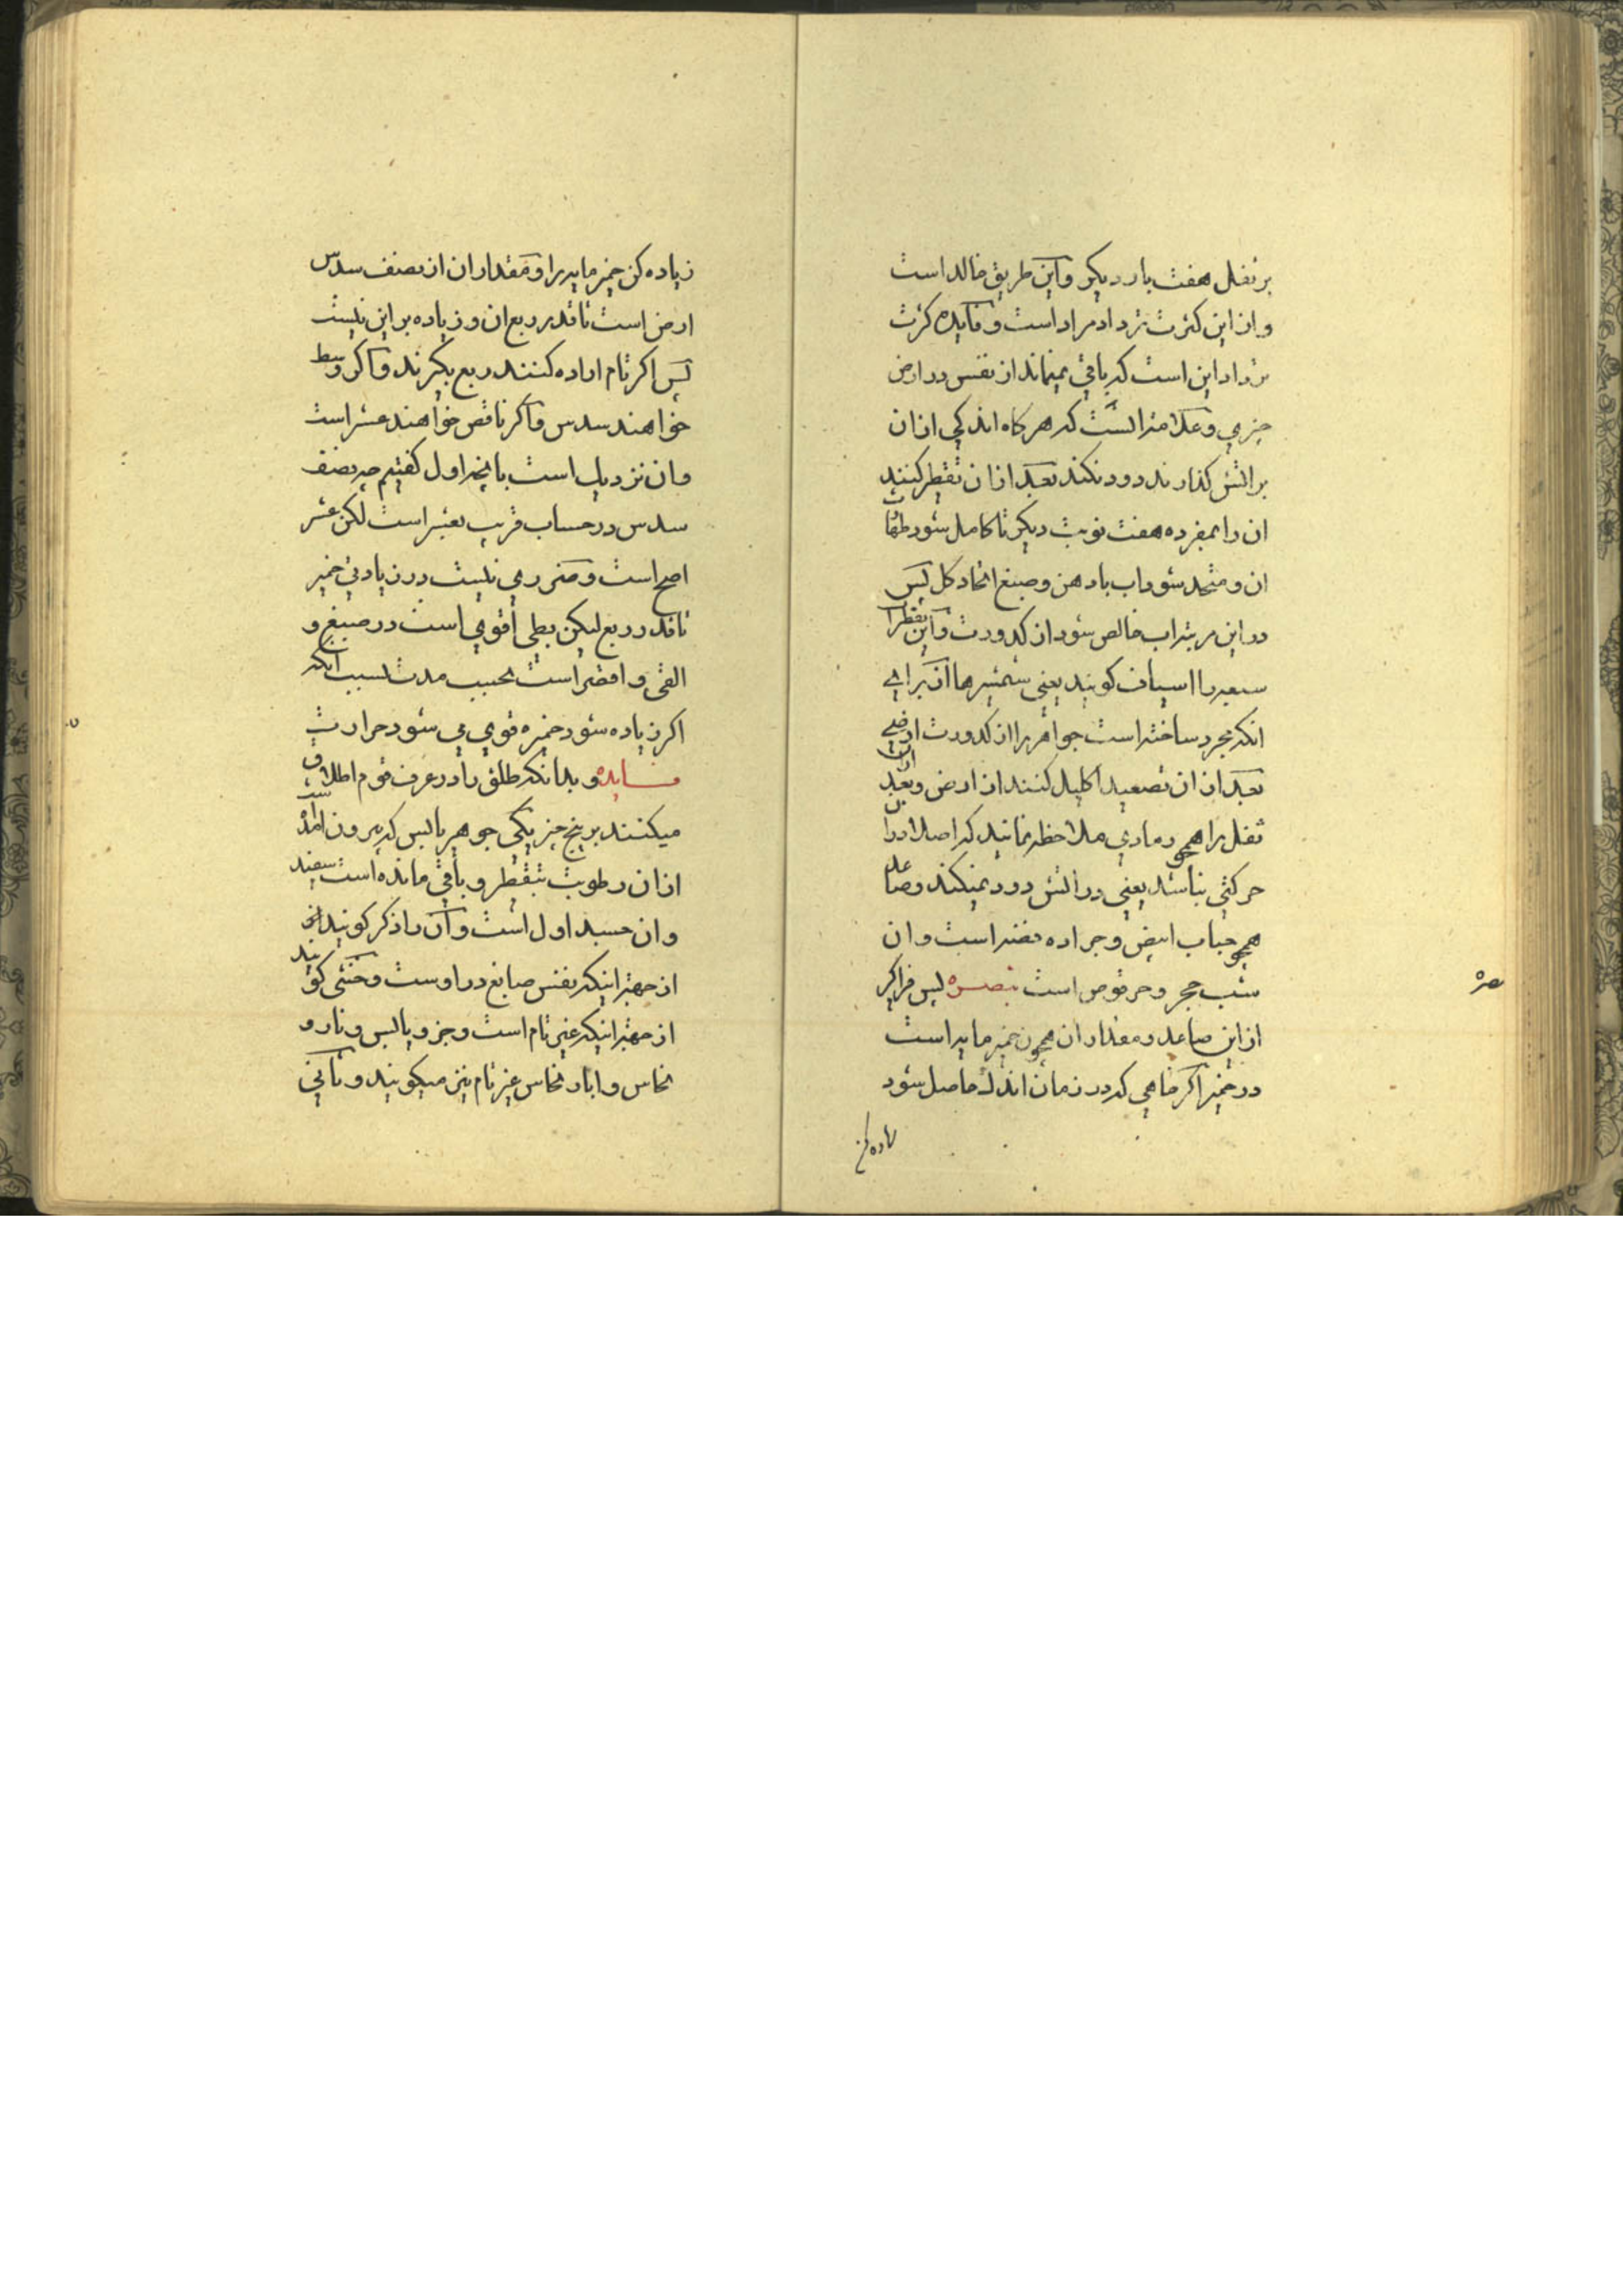 بر ثفل هفت بار دیکر و این طریق خالد است
و از این کثرت ترداد مراد است و فایده کثرت
ترداد این است که باقی نمیماند از نفس در ارض
چیزی و علامتر انست که هر کاه اندکی از ان
بر اتش کذارند دود نکند بعد از ان تقطیر کنند
ان را بمفرده هفت نوبت دیکر تا کامل شود طهارت
ان و متحد شود اب با دهن و صبغ اتحاد کل پس
در این مرتبه اب خالص شود از کدورت و این تقطیرات
سبعه را اسیاف کویند یعنی شمشیرها از برای
انکه مجرد ساخته است جواهر را از کدورت ارضی
بعد از ان تصعید اکلیل کنند از ارض و بعد از ان
ثفل را همچو رمادی ملاحظه نمایند که اصلا در ان
حرکتی نباشد یعنی در اتش دود نمیکند و صاعد
همچو حباب ابیض و جراده فضه است و ان
شب حجر و حرقوص است تبصره پس فرا کیر
از این صاعد و مقدار ان همچون خمیر مایه است
در خمیر اکر خواهی که در زمان اندک حاصل شود
زیاده کن
زیاده کن خمیر مایه را و مقدار ان از نصف سدس
ارض است تا قدر ربع ان و زیاده بر این نیست
پس اکر تام اراده کنند ربع بکیرند و اکر وسط
خواهند سدس و اکر ناقص خواهند عشر است
و ان نزدیک است بانچه اول کفتیم چه نصف
سدس در حساب قریب بعشر است لکن عشر
اصح است و ضرری نیست در زیادتی خمیر
تا قدر ربع لیکن بطی اقوی است در صبغ و
القی و اقصر است بحسب مدت بسبب انکه
اکر زیاده شود خمیره قوی می شود حرارت
فـایده و بدانکه طلق را در عرف قوم اطلاق
میکنند بر پنج چیز یکی جوهر یابس که بیرون امده است
از ان رطوبت بتقطیر و باقی مانده است سفید
و ان جسد اول است و ان را ذکر کویند
از جهة اینکه نفس صابغ در اوست و خنثی کویند
از جهة اینکه غیر تام است و جزو یابس و نار و
نحاس و ابار نحاس غیر تام نیز میکویند و ثانی